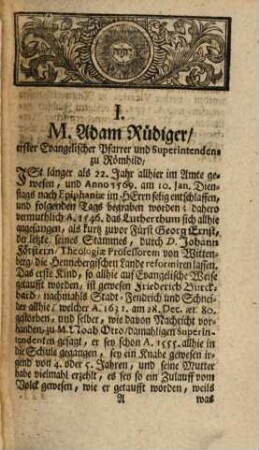 I.
M. Adam Rüdiger/
erster Evangelischer Pfarrer und Superintendens
zu Römhild/
ISt länger als 22. Jahr allhier im Amte ge-
wesen, und Anno 1569. am 10. Jan. Dien-
stags nach Epiphaniæ im HErrn selig entschlaffen,
und folgenden Tags begraben worden: dahero
vermuthlich A. 1546. das Lutherthum sich allhie
angefangen, als kurtz zuvor Fürst Georg Ernst,
der letzte seines Stammes, durch D. Johann
Förstern, Theologiæ Professorem von Witten-
berg die Hennebergischen Lande reformiren lassen.
Das erste Kind, so allhie auf Evangelische Weise
getaufft worden, ist gewesen Friederich Burck-
hard, nachmahls Stadt-Fendrich und Schnei-
der allhie, welcher A. 1631. am 28. Dec. æt. 80.
gestorben, und selber, wie davon Nachricht vor-
handen, zu M. Noah Otto, damahligen Superin-
tendenten gesagt, er sey schon A. 1555. allhie in
die Schule gegangen, sey ein Knabe gewesen ir-
gend von 4. oder 5. Jahren, und seine Mutter
habe vielmahl erzehlt, es sey so ein Zulauff vom
Volck gewesen, wie er getaufft worden, weils
A was